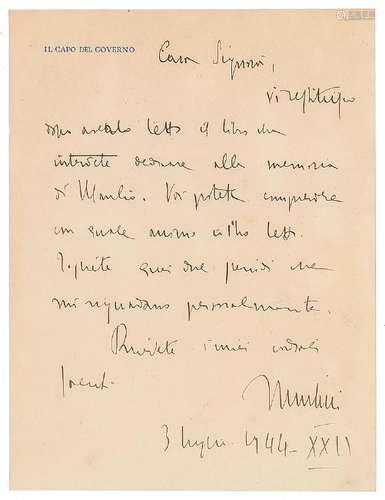 IL CAPO DEL GOVERNO
Cara Signora,
vi restituisco
dopo averlo letto il libro che
intendete dedicare alla memoria
di Manlio. Voi potete comprendere
con quale animo io l'ho letto.
quei due periodi che
mi riguardano personalmente.
Ricevete i miei cordiali
saluti
Mussolini
3 luglio 1944 - XXII